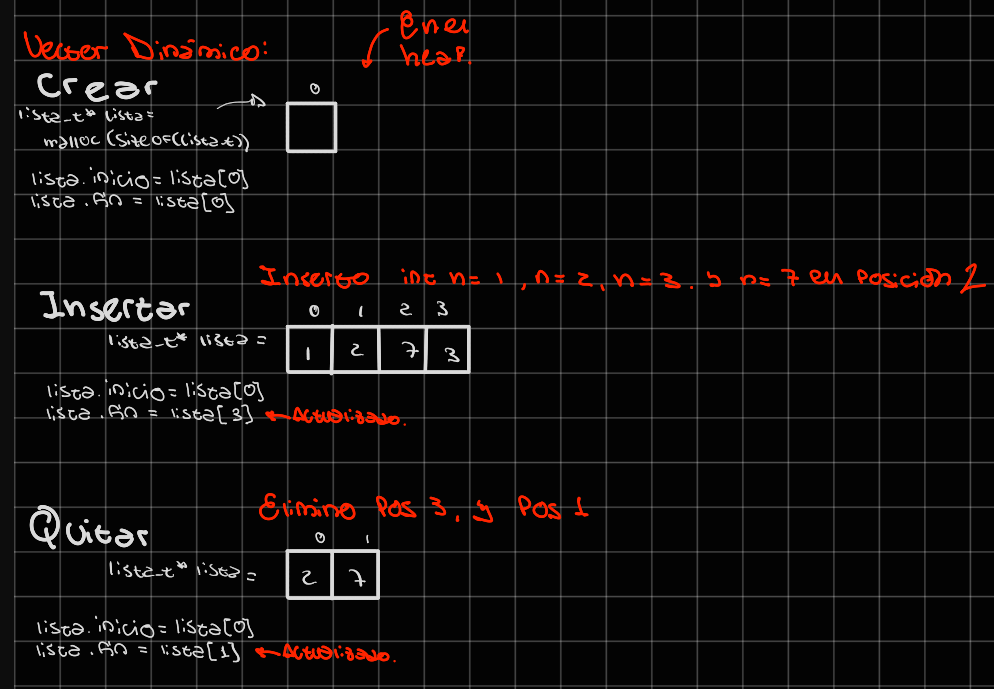 Vector Dinámico:
En el
heap.
Crear
lista_t* lista =
malloc (sizeof(lista_t))
0
lista.inicio = lista[0]
lista.fin = lista[0]
Inserto int n= 1, n= 2, n= 3. y n= 7 en posición 2
Insertar
0 1 2 3
lista_t* lista =
1 2 7 3
lista.inicio = lista[0]
lista.fin = lista[3] ← Actualizado.
Elimino Pos 3, y Pos 1
Quitar
0 1
lista_t* lista =
2 7
lista.inicio = lista[0]
lista.fin = lista[1] ← Actualizado.